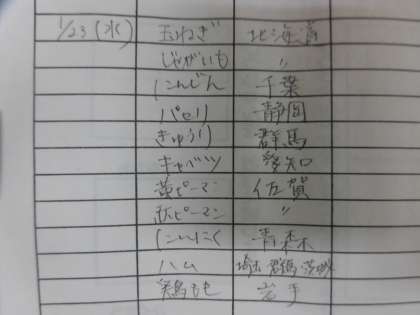 1/23(水) 玉ねぎ 北海道
じゃがいも 〃
にんじん 千葉
パセリ 静岡
きゅうり 群馬
キャベツ 愛知
黄ピーマン 佐賀
赤ピーマン 〃
にんにく 青森
ハム 埼玉 群馬 茨城
鶏もも 岩手